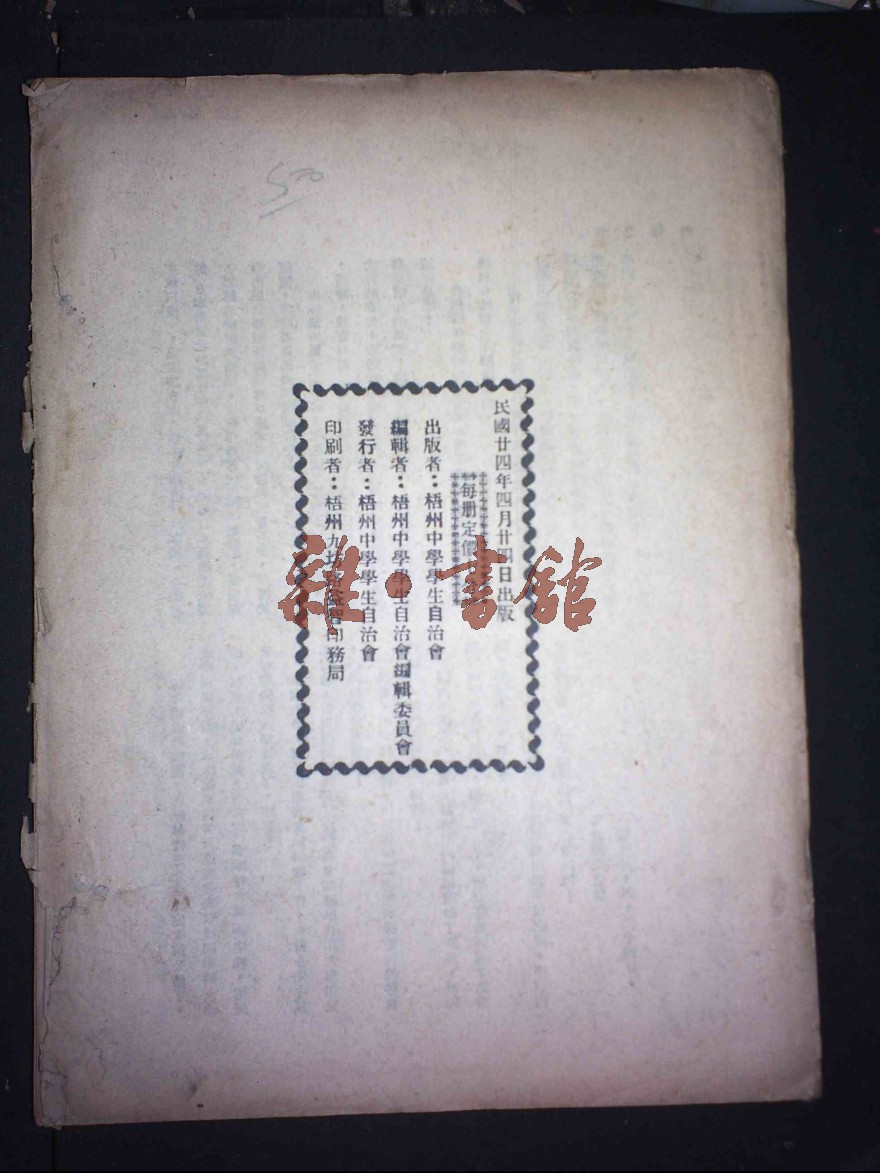 民國廿四年四月廿四日出版
每册定價
出版者：梧州中學學生自治會
編輯者：梧州中學學生自治會編輯委員會
發行者：梧州中學學生自治會
印刷者：梧州九坊路 印務局
雜·書館
500